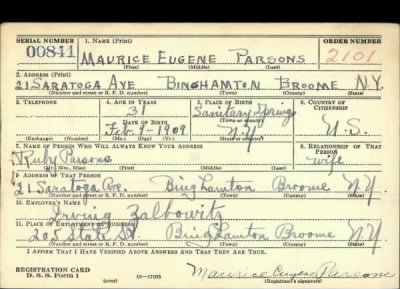 SERIAL NUMBER 1. NAME (Print) ORDER NUMBER
00841 MAURICE EUGENE PARSONS 2101
(First) (Middle) (Last)
2. ADDRESS (Print)
21 SARATOGA AVE BINGHAMTON BROOME N.Y.
(Number and street or R. F. D. number) (Town) (County) (State)
3. TELEPHONE 4. AGE IN YEARS 5. PLACE OF BIRTH 6. COUNTRY OF CITIZENSHIP
31 Sanitary Spring
DATE OF BIRTH (Town or county)
Feb 9 - 1909 N.Y U.S.
(Exchange) (Number) (Mo.) (Day) (Yr.) (State or country)
7. NAME OF PERSON WHO WILL ALWAYS KNOW YOUR ADDRESS 8. RELATIONSHIP OF THAT PERSON
Ruby Parsons wife
(Mr., Mrs., Miss) (First) (Middle) (Last)
9. ADDRESS OF THAT PERSON
21 Saratoga Ave. Binghamton Broome N.Y
(Number and street or R. F. D. number) (Town) (County) (State)
10. EMPLOYER'S NAME
Irving Zalbowitz
11. PLACE OF EMPLOYMENT OR BUSINESS
205 State St Binghamton Broome N.Y
(Number and street or R. F. D. number) (Town) (County) (State)
I AFFIRM THAT I HAVE VERIFIED ABOVE ANSWERS AND THAT THEY ARE TRUE.
REGISTRATION CARD
D. S. S. FORM 1 (over) 16—17105 Maurice Eugene Parsons
(Registrant's signature)